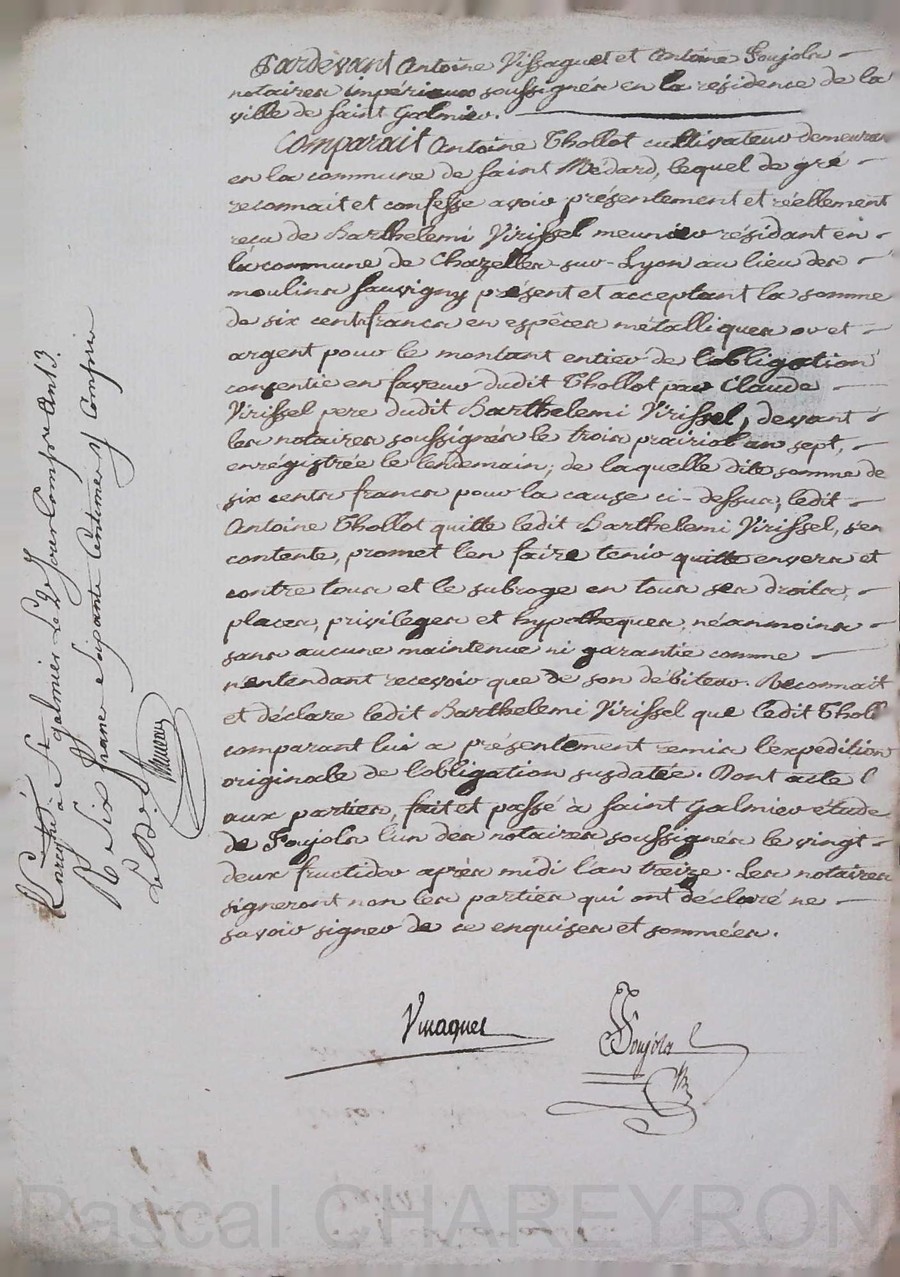 Pardevant Antoine Vissaguet et Antoine Poujola
notaires impériaux soussignés en la résidence de la
ville de Saint Galmier.
Comparait Antoine Thollot cultivateur demeuran
en la commune de Saint Médard, lequel de gré
reconnait et confesse avoir présentement et réellement
reçu de Barthelemi Virissel meunier résidant en
la commune de Chazelles-sur-Lyon au lieu des
moulins Sauvigny présent et acceptant la somme
de six cent francs en espèces métalliques or et
argent pour le montant entier de l'obligation
consentie en faveur dudit Thollot par Claude
Virissel pere dudit Barthelemi Virissel, devant
les notaires soussignés le trois prairial an sept,
enrégistrée le lendemain; de laquelle dite somme de
six cents francs pour la cause ci-dessus, ledit
Antoine Thollot quitte ledit Barthelemi Virissel, s'en
contente, promet l'en faire tenir quitte envers et
contre tous et le subroge en tous ses droits,
places, privileges et hypotheques, néanmoins
sans aucune maintenue ni garantie comme
n'entendant recevoir que de son débiteur. Reconnait
et déclare ledit Barthelemi Virissel que ledit Tholl
comparant lui a présentement remis l'expedition
originale de l'obligation susdatée. Dont acte
aux parties, fait et passé à Saint Galmier étude
de Poujola l'un des notaires soussignés le vingt-
deux fructidor après midi l'an treize. Les notaires
signeront non les parties qui ont déclaré ne
savoir signer de ce enquises et sommées.
Vissaguet
Poujola
Enregistré à St galmier le 2e Jour Compre an 13.
R Six francs Soixante Centimes Sn Compris
Pascal CHAREYRON